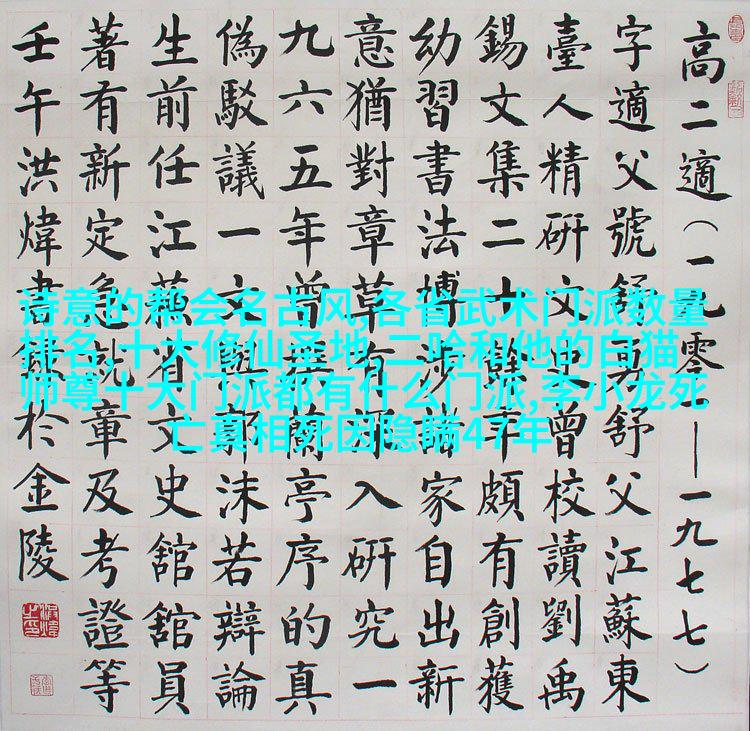 高二適（一九零一——一九七七）
字適父號舒舒父江蘇東
臺人精研文史曾校讀劉禹
錫文集二十餘年頗有創獲
幼習書法博涉諸家自出新
意猶對章草有深入研究一
九六五年曾撰蘭亭序的真
偽駁議一文與郭沫若辯論
生前任江蘇省文史舘舘員
著有新定急就章及考證等
壬午洪煒書錄於金陵
诗意的帮会名古风,各省武术门派数量
排名,十大修仙圣地,二哈和他的白猫
师尊十大门派都有什么门派,李小龙死
亡真相死因隐瞒47年